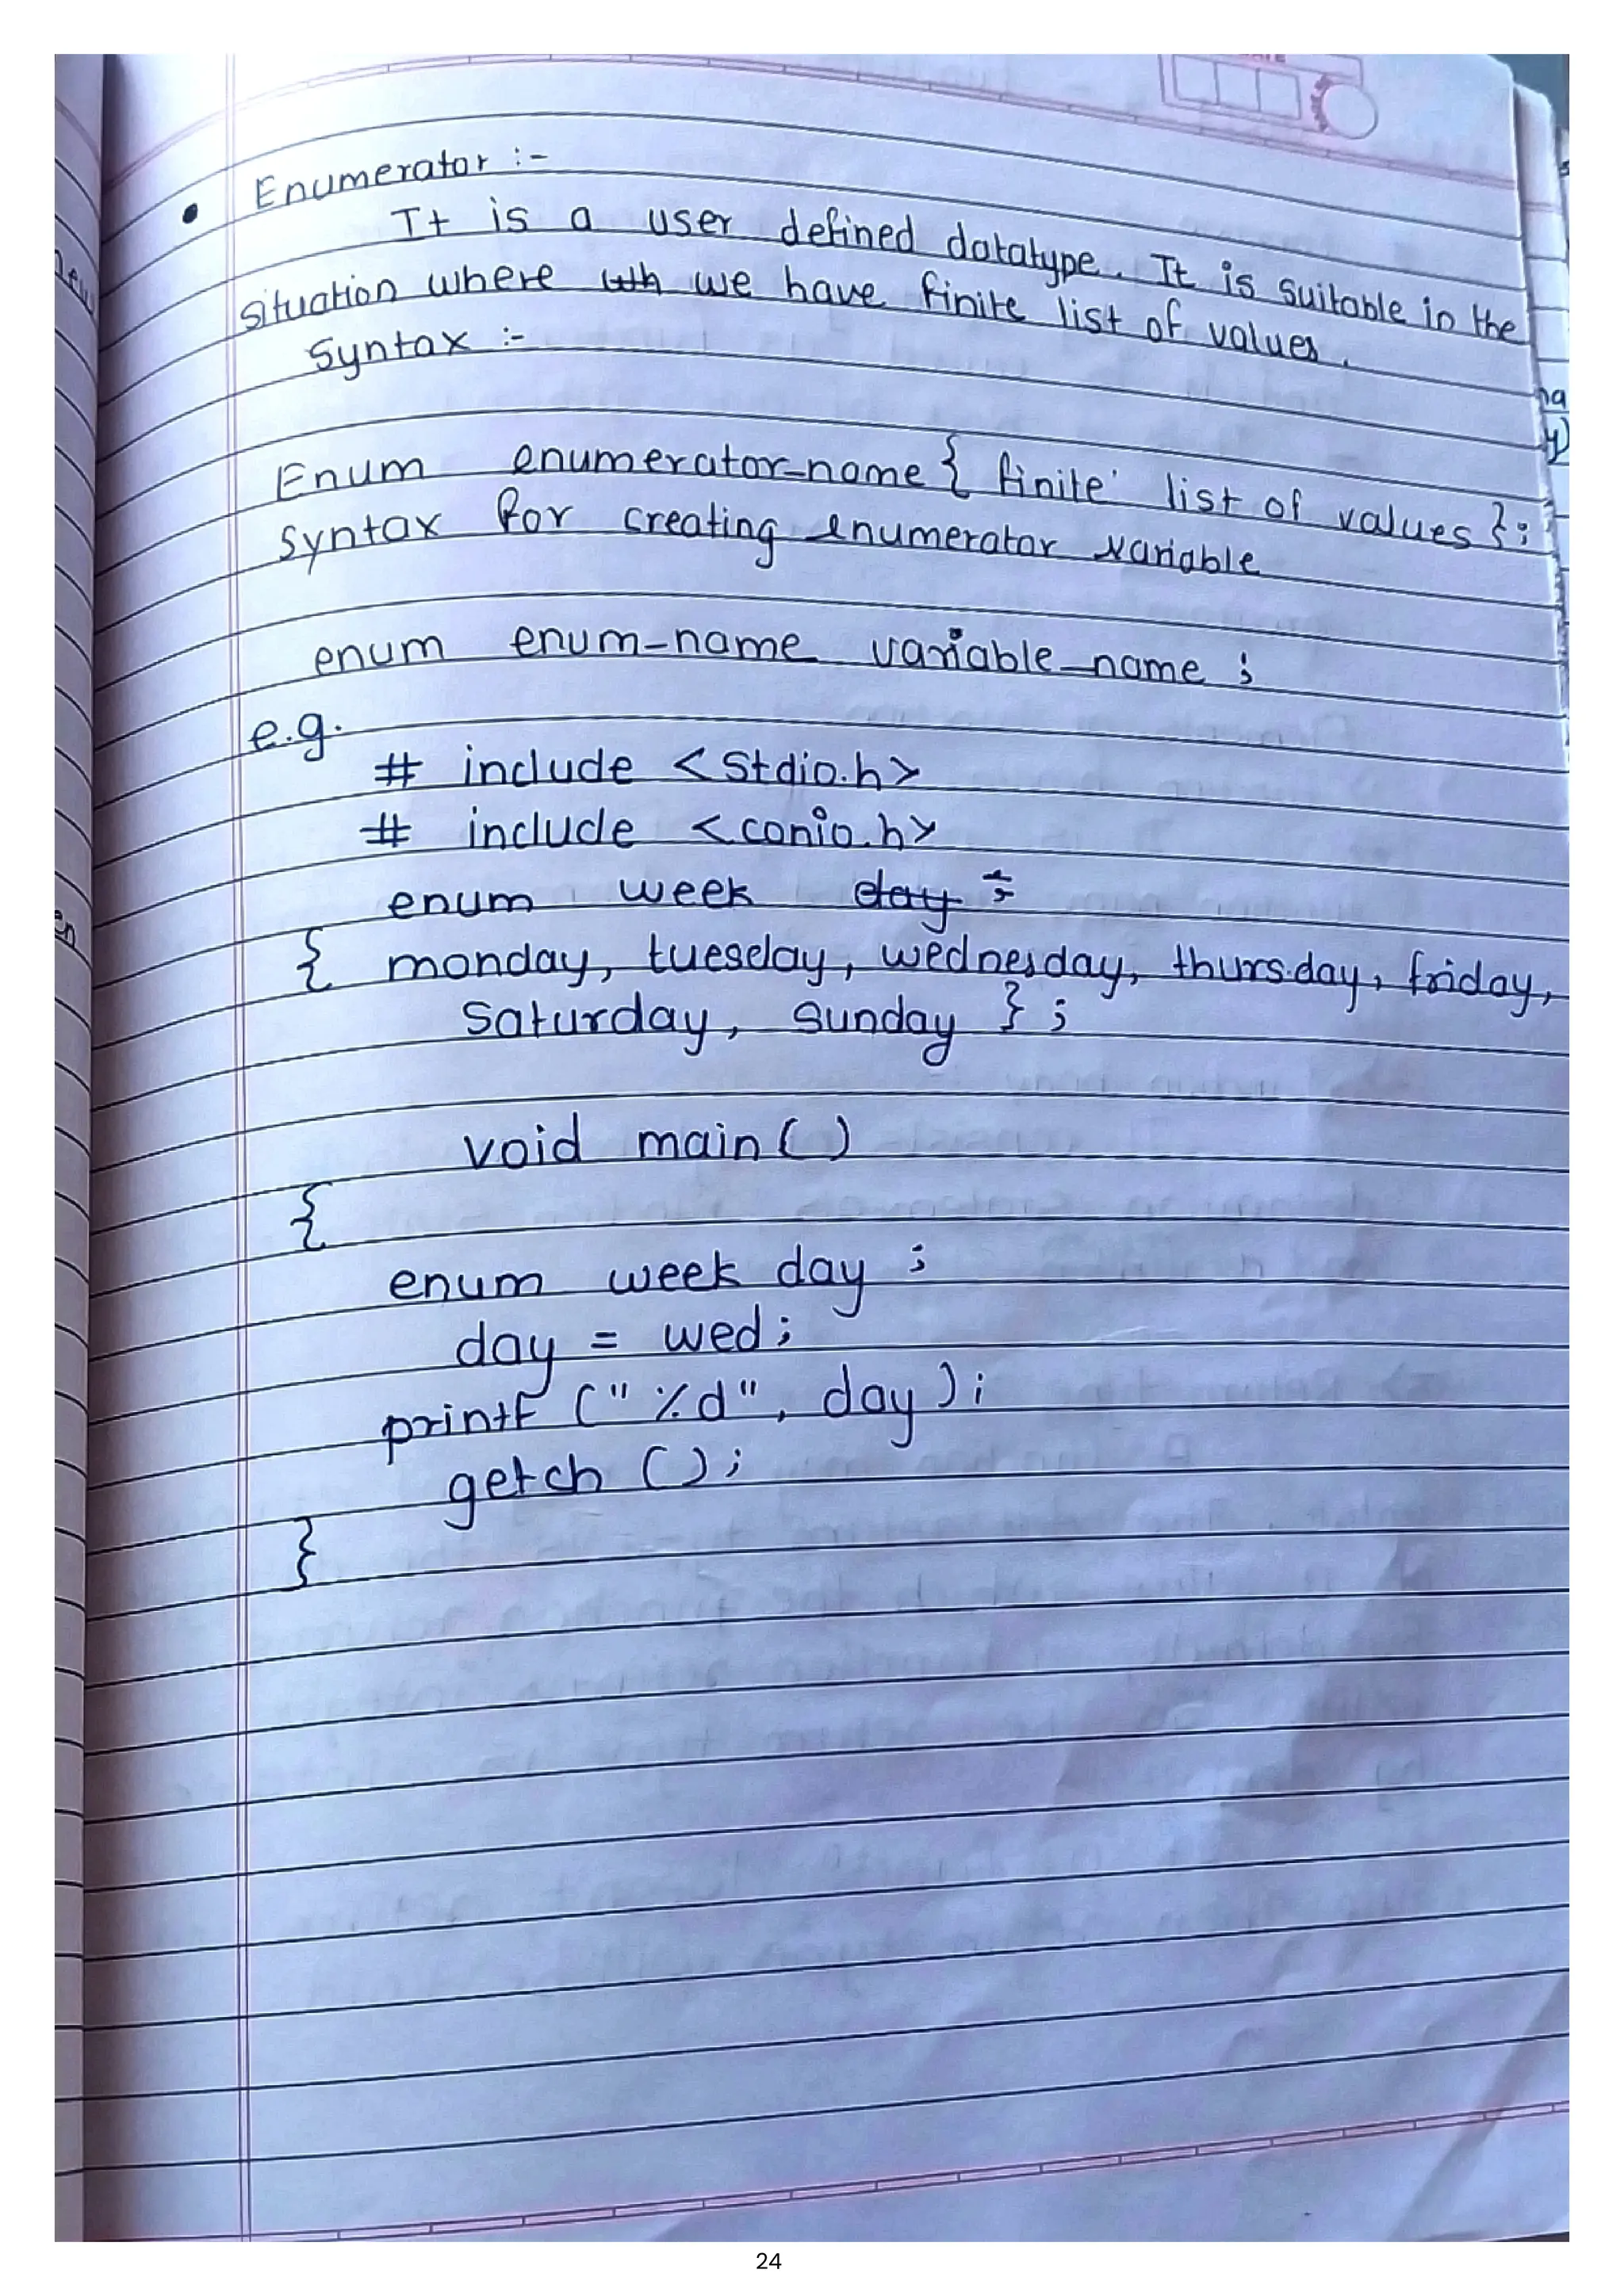 • Enumerator :-
It is a user defined datatype. It is suitable in the
situation where we have finite list of values.
Syntax :-
Enum enumerator_name { finite list of values };
Syntax for creating enumerator variable
enum enum_name variable_name ;
e.g.
# include <stdio.h>
# include <conio.h>
enum week day ;
{ monday, tuesday, wednesday, thursday, friday,
saturday, sunday } ;
void main ( )
{
enum week day ;
day = wed ;
printf (" %d", day ) ;
getch ( ) ;
}
24